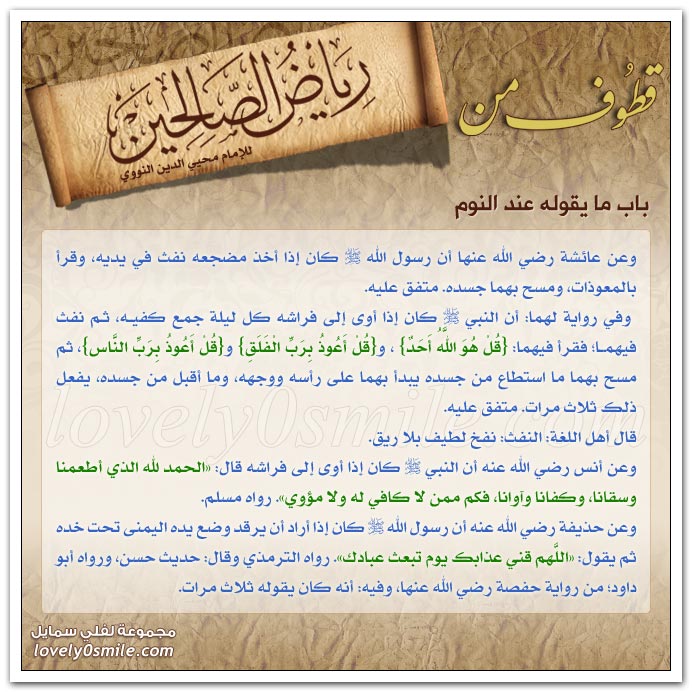 قطوف من
رياض الصالحين
للإمام محيي الدين النووي
باب ما يقوله عند النوم
وعن عائشة رضي الله عنها أن رسول الله ﷺ كان إذا أخذ مضجعه نفث في يديه، وقرأ
بالمعوذات، ومسح بهما جسده. متفق عليه.
وفي رواية لهما: أن النبي ﷺ كان إذا أوى إلى فراشه كل ليلة جمع كفيه، ثم نفث
فيهما؛ فقرأ فيهما: {قُلْ هُوَ اللَّهُ أَحَدٌ} ، و{قُلْ أَعُوذُ بِرَبِّ الْفَلَقِ} و{قُلْ أَعُوذُ بِرَبِّ النَّاسِ}، ثم
مسح بهما ما استطاع من جسده يبدأ بهما على رأسه ووجهه، وما أقبل من جسده، يفعل
ذلك ثلاث مرات. متفق عليه.
قال أهل اللغة: النفث: نفخ لطيف بلا ريق.
وعن أنس رضي الله عنه أن النبي ﷺ كان إذا أوى إلى فراشه قال: «الحمد لله الذي أطعمنا
وسقانا، وكفانا وآوانا، فكم ممن لا كافي له ولا مؤوي». رواه مسلم.
وعن حذيفة رضي الله عنه أن رسول الله ﷺ كان إذا أراد أن يرقد وضع يده اليمنى تحت خده
ثم يقول: «اللَّهم قني عذابك يوم تبعث عبادك». رواه الترمذي وقال: حديث حسن، ورواه أبو
داود؛ من رواية حفصة رضي الله عنها، وفيه: أنه كان يقوله ثلاث مرات.
lovely0smile.com
مجموعة لفلي سمايل
lovely0smile.com